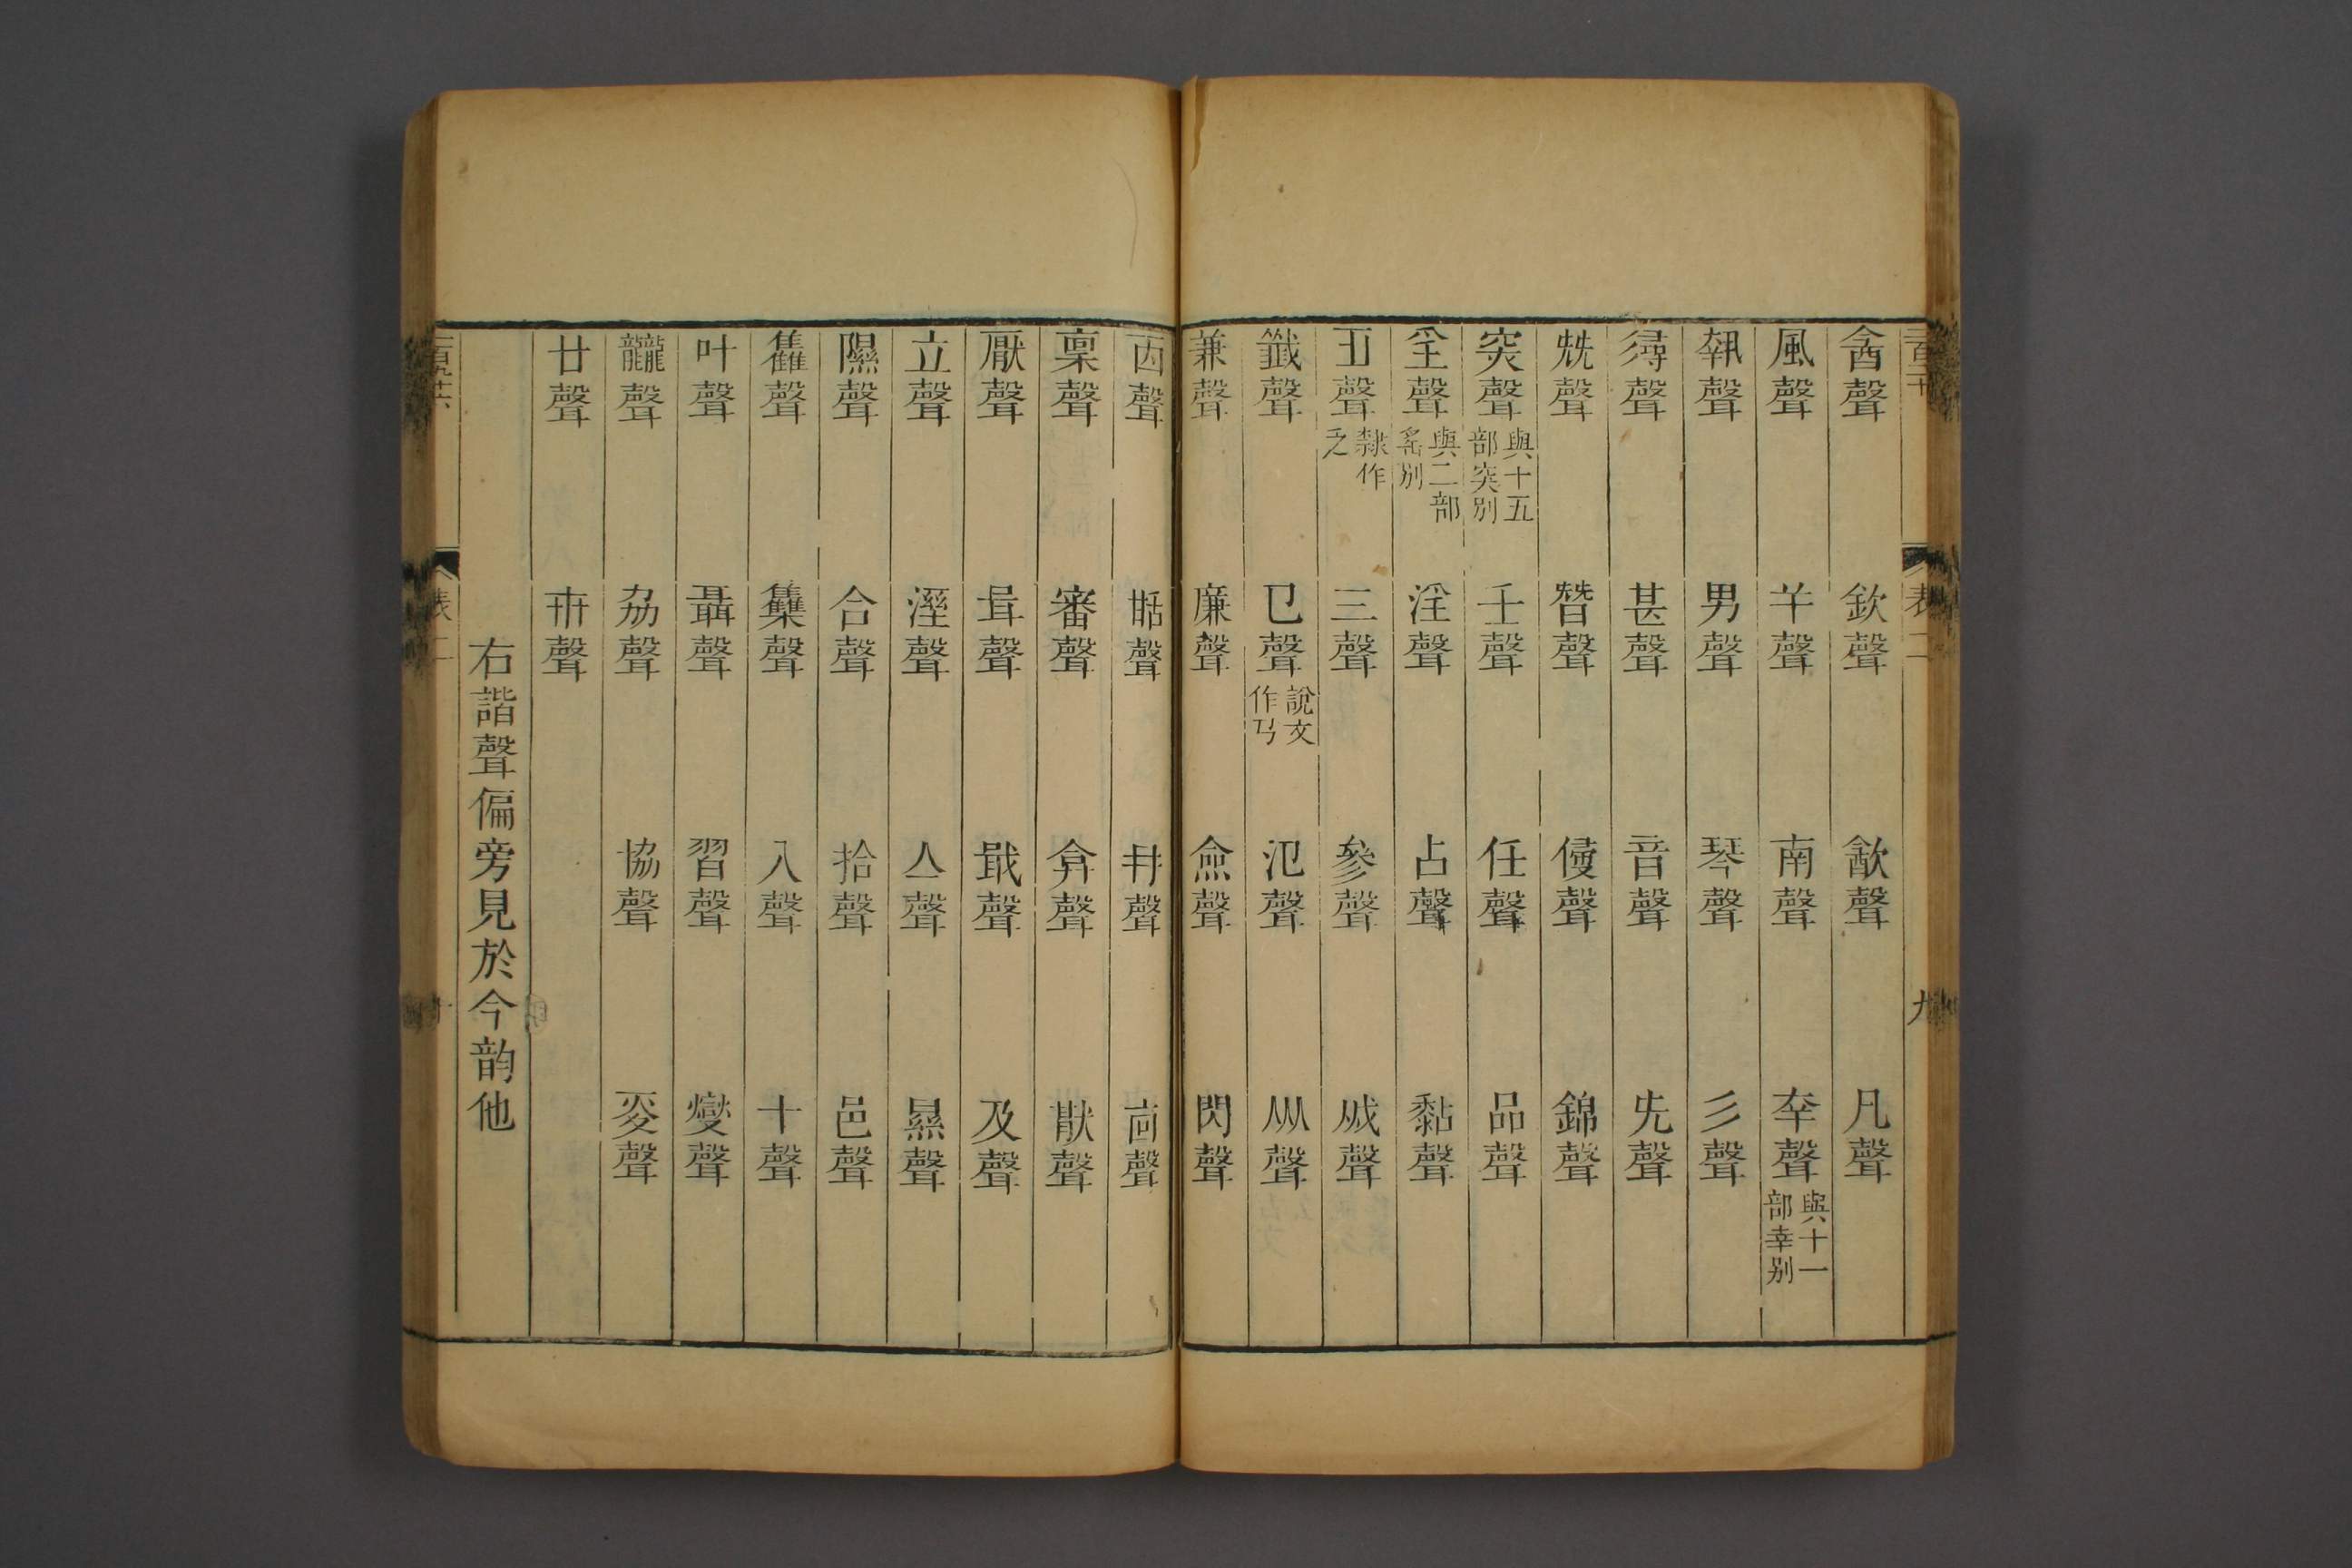 酓聲 欽聲 歙聲 凡聲
風聲 𢆉聲 南聲 㚔聲 與十一部幸別
𡙕聲 男聲 琴聲 彡聲
𢒫聲 甚聲 音聲 兂聲
兓聲 朁聲 㑴聲 錦聲
突聲 與十五部突別 壬聲 任聲 品聲
㸒聲 與二部䍃別 淫聲 占聲 黏聲
聲 隸作乏 三聲 參聲 𢦏聲
籤聲 㔾聲 說文作㔿 氾聲 㐺聲
兼聲 廉聲 僉聲 閃聲
㐁聲 㛧聲 冄聲 㐭聲
稟聲 審聲 弇聲 猒聲
厭聲 咠聲 戢聲 及聲
立聲 溼聲 亼聲 㬎聲
隰聲 合聲 拾聲 邑聲
雥聲 雧聲 入聲 十聲
叶聲 聶聲 習聲 燮聲
龖聲 劦聲 協聲 㚆聲
廿聲 卅聲
右諧聲偏旁見於今韵他
表二
九